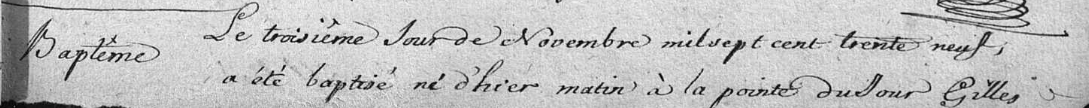 Baptême
Le troisième Jour de Novembre mil sept cent trente neuf,
a été baptisé né d'hier matin à la pointe du Jour Gilles